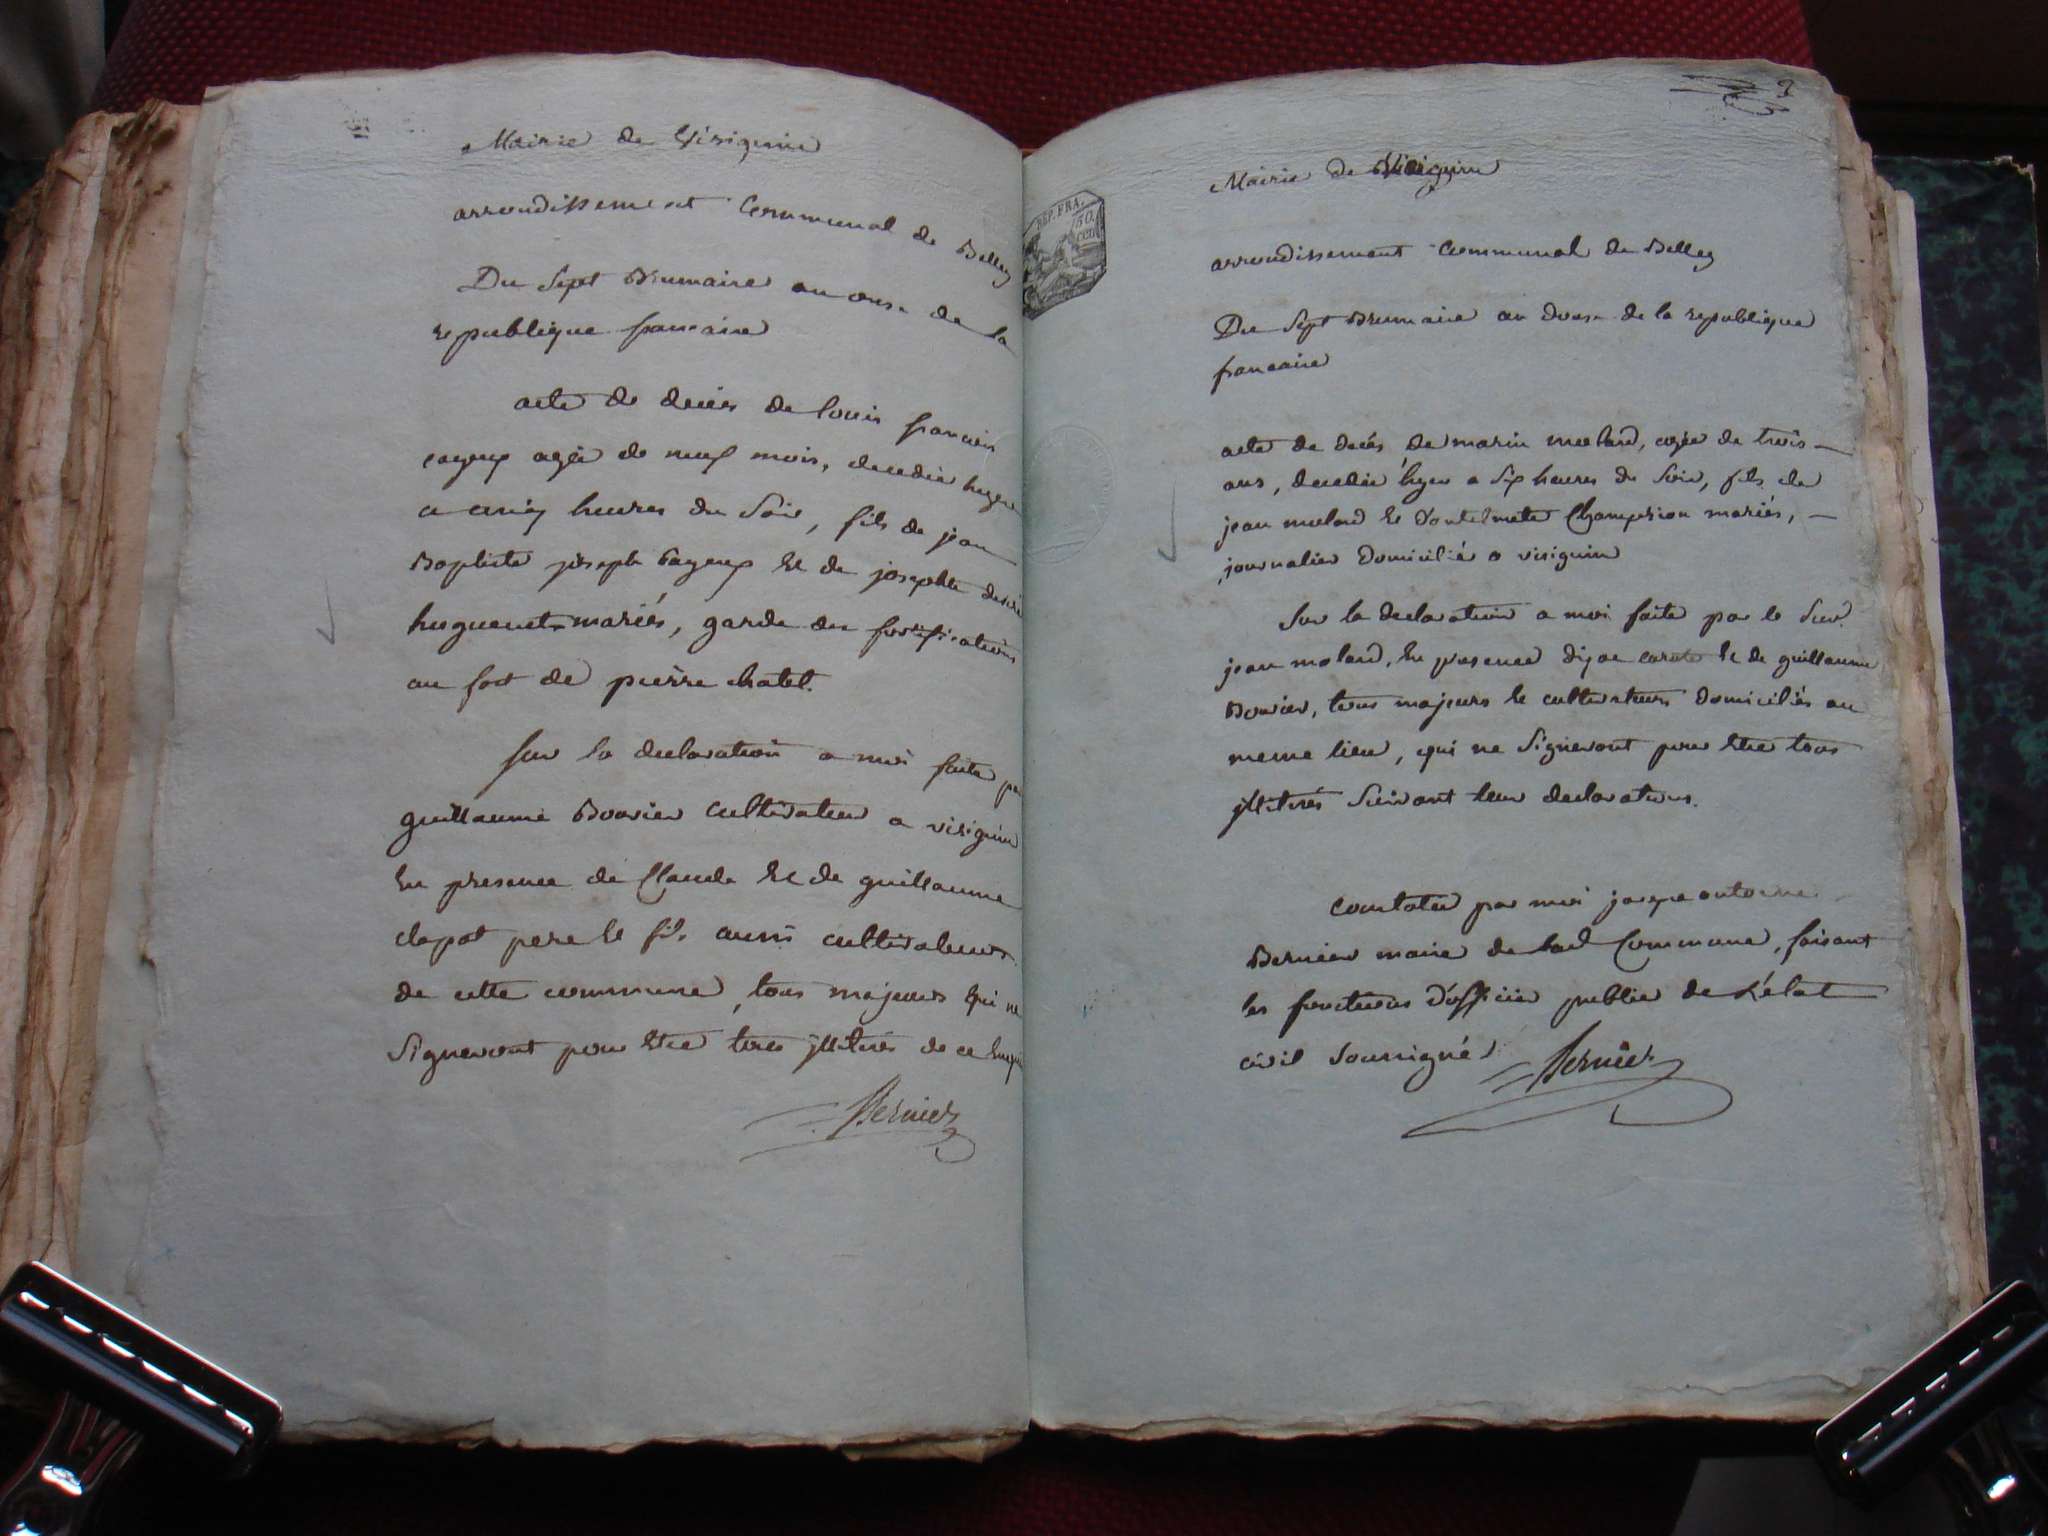 Mairie de Virignin
arrondissement Communal de Belley
Du Sept Brumaire an onse de la
republique francaise
acte de deces de louis francois
agée de neuf mois, decedée hyer
a cinq heures du Soir, fils de jean
Baptiste joseph et de josephte
huguenet mariés, garde des fortifications
au fort de pierre chatel.
Sur la declaration a moi faite par
guillaume Bouvier cultivateur a virignin
en presence de Claude et de guillaume
clapot pere et fils aussi cultivateurs
de cette commune, tous majeurs qui ne
Signeront pour etre tous illitrés de ce enquis
Bernier
2
REP. FRA.
50.
CEN
Mairie de Virignin
arrondissement Communal de Belley
Du Sept Brumaire an douse de la republique
francaise
acte de decés de marin molard, agée de trois
ans, decedée hyer a Six heures du Soir, fils de
jean molard et Champrion mariés,
journalier domicilié a virignin
Sur la declaration a moi faite par le Sieur
jean molard, en presence et de guillaume
Bouvier, tous majeurs et cultivateurs domiciliés au
meme lieu, qui ne Signeront pour etre tous
illitrés Suivant leur declarations.
Constatée par moi joseph antoine
Bernier maire de lad Commune, faisant
les fonctions d'officier public de l'état
civil Soussigné
Bernier